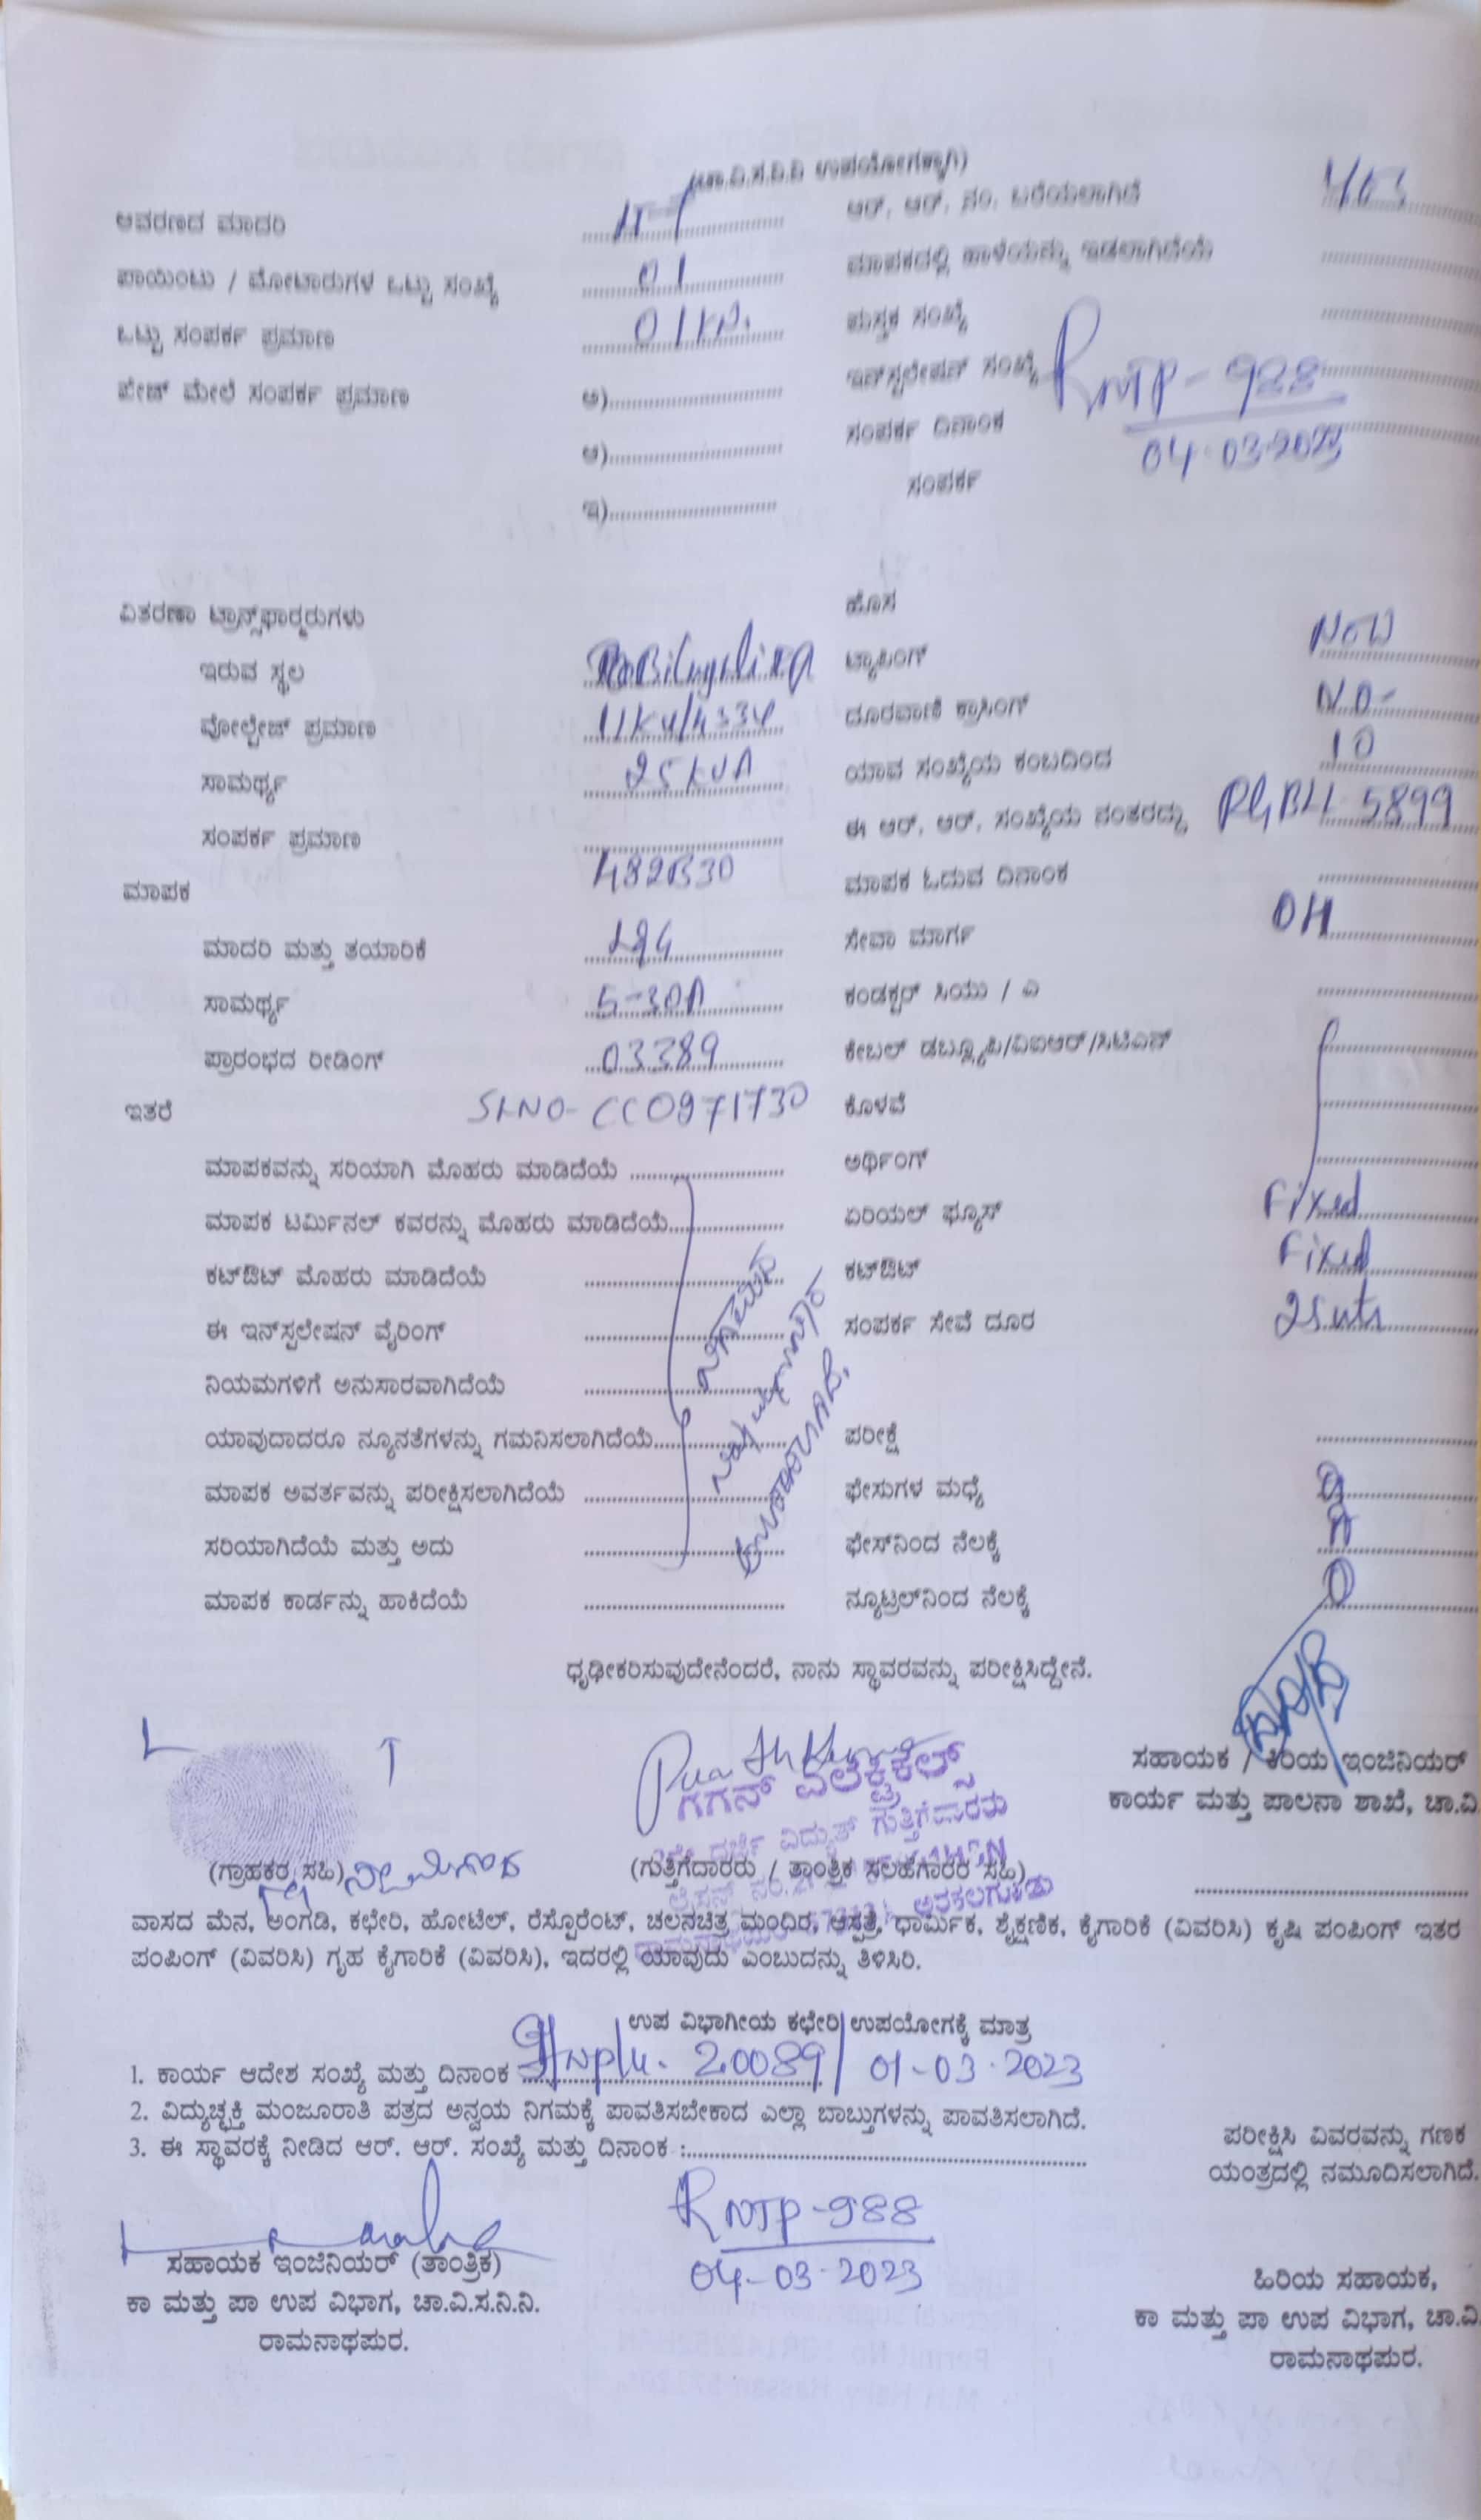 (ಚಾ.ವಿ.ಸ.ನಿ.ನಿ ಉಪಯೋಗಕ್ಕಾಗಿ)
ಆವರಣದ ಮಾದರಿ ಆರ್. ಆರ್. ನಂ. ಬರೆಯಲಾಗಿದೆ Yes
ಪಾಯಿಂಟು / ಮೋಟಾರುಗಳ ಒಟ್ಟು ಸಂಖ್ಯೆ 01 ಮಾಪಕದಲ್ಲಿ ಹಾಳೆಯನ್ನು ಇಡಲಾಗಿದೆಯೆ
ಒಟ್ಟು ಸಂಪರ್ಕ ಪ್ರಮಾಣ ಪುಸ್ತಕ ಸಂಖ್ಯೆ
ಪೇಜ್ ಮೇಲೆ ಸಂಪರ್ಕ ಪ್ರಮಾಣ ಅ) ಇನ್‌ಸ್ಟಲೇಷನ್ ಸಂಖ್ಯೆ RNTP-988
ಆ) ಸಂಪರ್ಕ ದಿನಾಂಕ 04-03-2023
ಇ) ಸಂಪರ್ಕ
ವಿತರಣಾ ಟ್ರಾನ್ಸ್‌ಫಾರ್ಮರುಗಳು ಹೊಸ
ಇರುವ ಸ್ಥಳ ಟ್ಯಾಪಿಂಗ್ New
ವೋಲ್ಟೇಜ್ ಪ್ರಮಾಣ ದೂರವಾಣಿ ಕ್ರಾಸಿಂಗ್ NO-
ಸಾಮರ್ಥ್ಯ 25 KVA ಯಾವ ಸಂಖ್ಯೆಯ ಕಂಬದಿಂದ 10
ಸಂಪರ್ಕ ಪ್ರಮಾಣ ಈ ಆರ್. ಆರ್. ಸಂಖ್ಯೆಯ ನಂತರದ್ದು 5899
ಮಾಪಕ ಮಾಪಕ ಓದುವ ದಿನಾಂಕ
ಮಾದರಿ ಮತ್ತು ತಯಾರಿಕೆ L&G ಸೇವಾ ಮಾರ್ಗ OH
ಸಾಮರ್ಥ್ಯ 5-30A ಕಂಡಕ್ಟರ್ ಸಿಯು / ಎ
ಪ್ರಾರಂಭದ ರೀಡಿಂಗ್ 03389 ಕೇಬಲ್ ಡಬ್ಲ್ಯೂಪಿ/ವಿಐಆರ್/ಸಿಟಿಎಸ್
ಇತರೆ SLNO- CC0971730 ಕೊಳವೆ
ಮಾಪಕವನ್ನು ಸರಿಯಾಗಿ ಮೊಹರು ಮಾಡಿದೆಯೆ ಅರ್ಥಿಂಗ್
ಮಾಪಕ ಟರ್ಮಿನಲ್ ಕವರನ್ನು ಮೊಹರು ಮಾಡಿದೆಯೆ ಏರಿಯಲ್ ಫ್ಯೂಸ್ Fixed
ಕಟ್‌ಔಟ್ ಮೊಹರು ಮಾಡಿದೆಯೆ ಕಟ್‌ಔಟ್ Fixed
ಈ ಇನ್‌ಸ್ಟಲೇಷನ್ ವೈರಿಂಗ್ ಸಂಪರ್ಕ ಸೇವೆ ದೂರ 25mtr
ನಿಯಮಗಳಿಗೆ ಅನುಸಾರವಾಗಿದೆಯೆ
ಯಾವುದಾದರೂ ನ್ಯೂನತೆಗಳನ್ನು ಗಮನಿಸಲಾಗಿದೆಯೆ ಪರೀಕ್ಷೆ
ಮಾಪಕ ಅವರ್ತವನ್ನು ಪರೀಕ್ಷಿಸಲಾಗಿದೆಯೆ ಫೇಸುಗಳ ಮಧ್ಯೆ
ಸರಿಯಾಗಿದೆಯೆ ಮತ್ತು ಅದು ಫೇಸ್‌ನಿಂದ ನೆಲಕ್ಕೆ
ಮಾಪಕ ಕಾರ್ಡನ್ನು ಹಾಕಿದೆಯೆ ನ್ಯೂಟ್ರಲ್‌ನಿಂದ ನೆಲಕ್ಕೆ
ನಿಗಮದ
ನಿಯಮಾನುಸಾರ
ಧೃಢೀಕರಿಸುವುದೇನೆಂದರೆ, ನಾನು ಸ್ಥಾವರವನ್ನು ಪರೀಕ್ಷಿಸಿದ್ದೇನೆ.
L T
ಗಗನ್ ಎಲೆಕ್ಟ್ರಿಕಲ್ಸ್
ದರ್ಜೆ ವಿದ್ಯುತ್ ಗುತ್ತಿಗೆದಾರರು
ಸಹಾಯಕ / ಕಿರಿಯ ಇಂಜಿನಿಯರ್
ಕಾರ್ಯ ಮತ್ತು ಪಾಲನಾ ಶಾಖೆ, ಚಾ.ವಿ
(ಗ್ರಾಹಕರ ಸಹಿ) (ಗುತ್ತಿಗೆದಾರರು / ತಾಂತ್ರಿಕ ಸಲಹೆಗಾರರ ಸಹಿ)
ವಾಸದ ಮೆನ, ಅಂಗಡಿ, ಕಛೇರಿ, ಹೋಟೆಲ್, ರೆಸ್ಟೊರೆಂಟ್, ಚಲನಚಿತ್ರ ಮಂದಿರ, ಆಸ್ಪತ್ರೆ, ಧಾರ್ಮಿಕ, ಶೈಕ್ಷಣಿಕ, ಕೈಗಾರಿಕೆ (ವಿವರಿಸಿ) ಕೃಷಿ ಪಂಪಿಂಗ್ ಇತರ
ಪಂಪಿಂಗ್ (ವಿವರಿಸಿ) ಗೃಹ ಕೈಗಾರಿಕೆ (ವಿವರಿಸಿ), ಇದರಲ್ಲಿ ಯಾವುದು ಎಂಬುದನ್ನು ತಿಳಿಸಿರಿ.
ಉಪ ವಿಭಾಗೀಯ ಕಛೇರಿ ಉಪಯೋಗಕ್ಕೆ ಮಾತ್ರ
1. ಕಾರ್ಯ ಆದೇಶ ಸಂಖ್ಯೆ ಮತ್ತು ದಿನಾಂಕ 20089/ 01-03-2023
2. ವಿದ್ಯುಚ್ಛಕ್ತಿ ಮಂಜೂರಾತಿ ಪತ್ರದ ಅನ್ವಯ ನಿಗಮಕ್ಕೆ ಪಾವತಿಸಬೇಕಾದ ಎಲ್ಲಾ ಬಾಬ್ತುಗಳನ್ನು ಪಾವತಿಸಲಾಗಿದೆ.
3. ಈ ಸ್ಥಾವರಕ್ಕೆ ನೀಡಿದ ಆರ್. ಆರ್. ಸಂಖ್ಯೆ ಮತ್ತು ದಿನಾಂಕ :
ಪರೀಕ್ಷಿಸಿ ವಿವರವನ್ನು ಗಣಕ
ಯಂತ್ರದಲ್ಲಿ ನಮೂದಿಸಲಾಗಿದೆ.
RNTP-988
04-03-2023
ಸಹಾಯಕ ಇಂಜಿನಿಯರ್ (ತಾಂತ್ರಿಕ)
ಕಾ ಮತ್ತು ಪಾ ಉಪ ವಿಭಾಗ, ಚಾ.ವಿ.ಸ.ನಿ.ನಿ.
ರಾಮನಾಥಪುರ.
ಹಿರಿಯ ಸಹಾಯಕ,
ಕಾ ಮತ್ತು ಪಾ ಉಪ ವಿಭಾಗ, ಚಾ.ವಿ
ರಾಮನಾಥಪುರ.